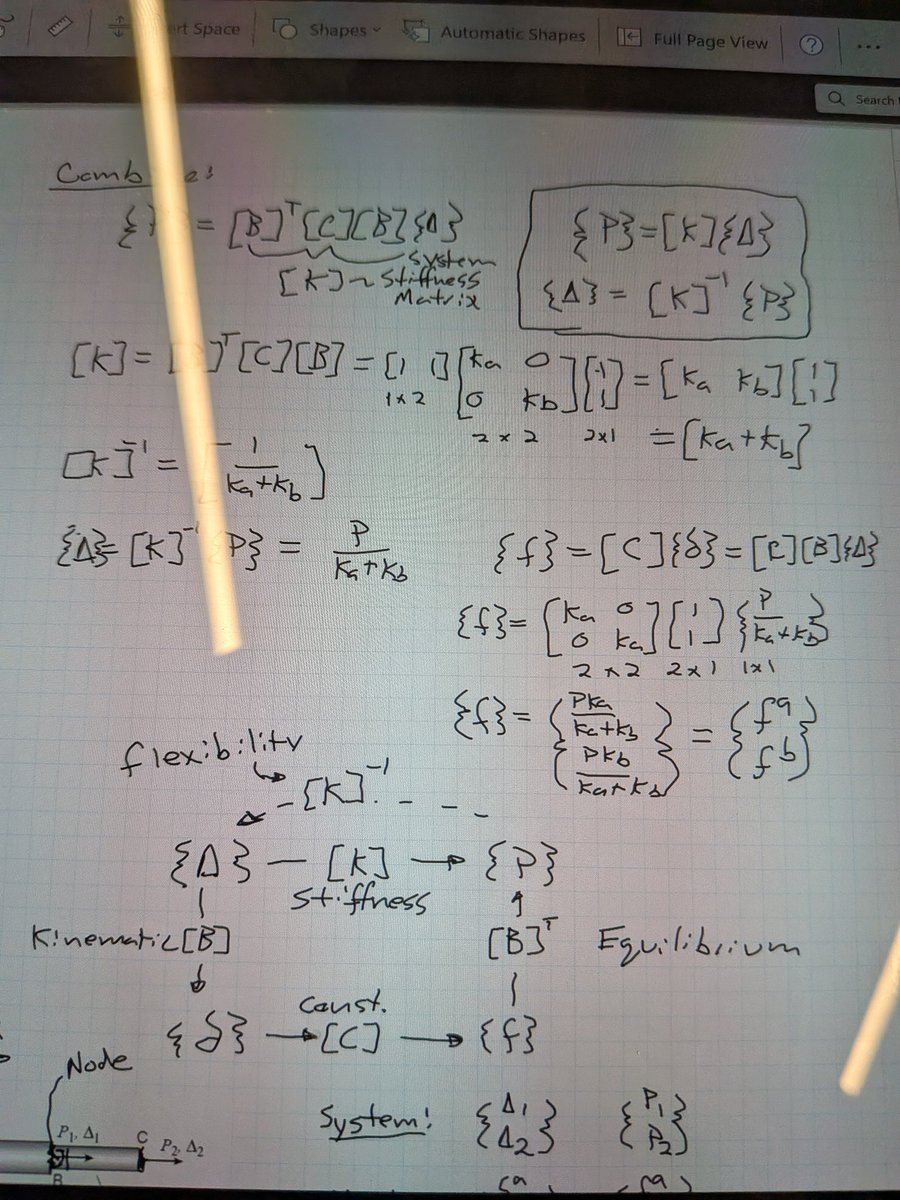 Shapes
Automatic Shapes
Full Page View
?
...
Search
{ } = [B]ᵀ[C][B]{Δ}
System
[K] ~ Stiffness
Matrix
{P} = [K]{Δ}
{Δ} = [K]⁻¹ {P}
[K] = [B]ᵀ[C][B] = [1 1] [ka 0; 0 kb] [1; 1] = [ka kb] [1; 1]
1x2 2x2 2x1
= [ka + kb]
[K]⁻¹ = [1/(ka + kb)]
{Δ} = [K]⁻¹ {P} = P/(ka + kb)
{f} = [C]{δ} = [C][B]{Δ}
{f} = [ka 0; 0 ka] [1; 1] {P/(ka + kb)}
2x2 2x1 1x1
{f} = {Pka/(ka + kb); Pkb/(ka + kb)} = {fa; fb}
flexibility
[K]⁻¹
{Δ} — [K] → {P}
Stiffness
Kinematic [B]
[B]ᵀ Equilibrium
Const.
{δ} → [C] → {f}
Node
P₁, Δ₁
C
P₂, Δ₂
B
System:
{Δ₁; Δ₂} {P₁; P₂}